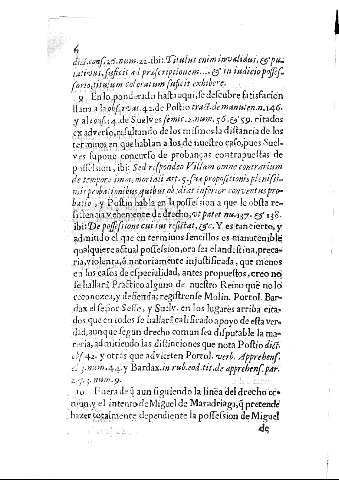 6
dict. cons. 26. num. 22. ibi: Titulus enim invalidus, & pu-
tativus, suficit ad præscriptionem.... & in iudicio posses-
sorio, titulum coloratum suficit exhibere.
9 En lo ponderado hasta aqui, se descubre satisfacion
a la observas. 42. de Postio tract. de manuten. n. 146.
y al cons. 14. de Suelves semic. 2. num. 56. & 59. citados
ex adverso, resultando de los mismos la distancia de los
terminos en que hablan a los de nuestro caso, pues Suel-
ves supone concurso de probanças contrapuestas de
possession, ibi: Sed respondeo Villam omne contrarium
de tempore immemoriali art. 5. suæ propositionis plenissi-
mis probationibus, quibus obediat inferior conventus pro-
batio, y Postio habla en la possession a que le obsta re-
sistencia vehemente de drecho, ut patet nu. 137. & 138.
ibi: De possessione cui ius resistat, &c. Y es tan cierto, y
admitido el que en terminos sencillos es manutenible
qualquiere actual possession, ora sea clandestina, preca-
ria, violenta, ò notoriamente injustificada, que menos
en los casos de especialidad, antes propuestos, creo no
se hallarà Practico alguno de nuestro Reino què no lo
reconozca, y defienda; registrense Molin. Portol. Bar-
dax el señor Sesse, y Suelv. en los lugares arriba cita-
dos que en todos se hallarà calificado apoyo de esta ver-
dad, aunque segun drecho comun sea disputable la ma-
teria, admitiendo las distinciones que nota Postio dict.
obs. 42. y otros que advierten Portol. verb. Apprehens.
el 3. num. 44. y Bardax. in rub. eod. tit. de apprehens. par.
2. q. 3. num. 9.
10 Fuera de q̃ aun siguiendo la linea del drecho co-
mun, y el intento de Miguel de Maradriaga, q̃ pretende
hazer totalmente dependiente la possession de Miguel
de